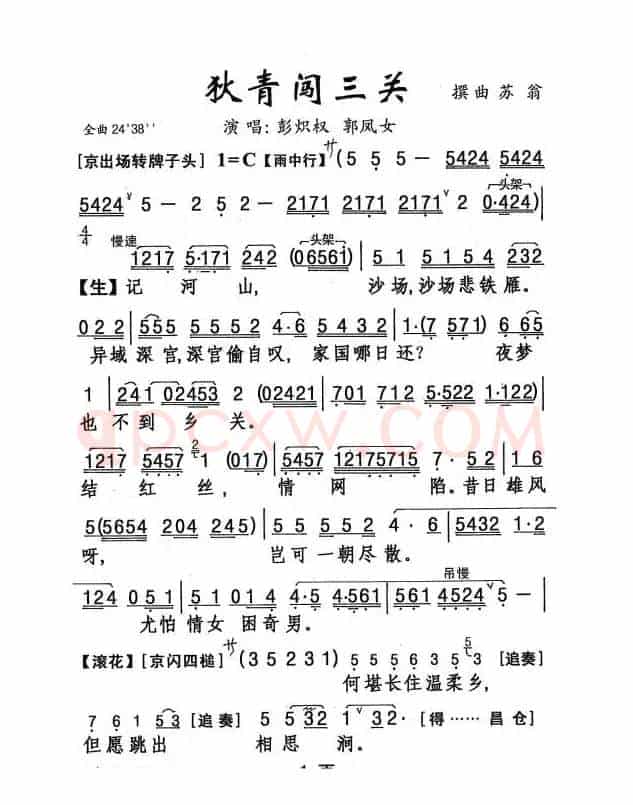 狄青闯三关
撰曲 苏翁
全曲24'38''
演唱:彭炽权 郭凤女
[京出场转牌子头] 1=C【雨中行】サ(5 5 5 — 5424 5424
5424 ∨ 5 — 2 5 2 — 2171 2171 2171 ∨ 2 0·424)
头架
4/4 慢速 头架
1217 5·171 242 (06561) 5 1 5 1 5 4 232
【生】记河山, 沙场,沙场悲铁雁。
022 | 555 5 5 5 2 4·6 5 4 3 2 | 1·(7 571) 6 65
异域深宫,深宫偷自叹, 家国哪日还? 夜梦
1 | 241 02453 2 (02421 | 701 712 5·522 1·122)
也不到乡关。
1217 5457 1 (017) | 5457 12175715 7·5 2 | 1 6
结红丝, 情网陷。昔日雄风
5(5654 204 245) | 5 5 5 5 5 2 4·6 | 5432 1·2
呀, 岂可一朝尽散。
124 0 5 1 | 5 1 0 1 4 4·5 4·561 | 561 4524 ∨ 5 —
吊慢
尤怕情女困奇男。
【滚花】[京闪四槌]サ(3 5 2 3 1) 5 5 5 6 5 3 [追奏]
何堪长住温柔乡,
7 6 1 53 [追奏] 5 5 32 1 ∨ 32· [得……昌仓]
但愿跳出 相思涧。
PCXW.COM